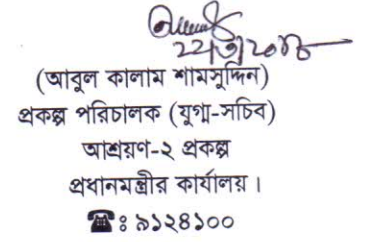 (আবুল কালাম শামসুদ্দিন)
প্রকল্প পরিচালক (যুগ্ম-সচিব)
আশ্রয়ণ-২ প্রকল্প
প্রধানমন্ত্রীর কার্যালয়।
☎ঃ ৯১২৪১০০